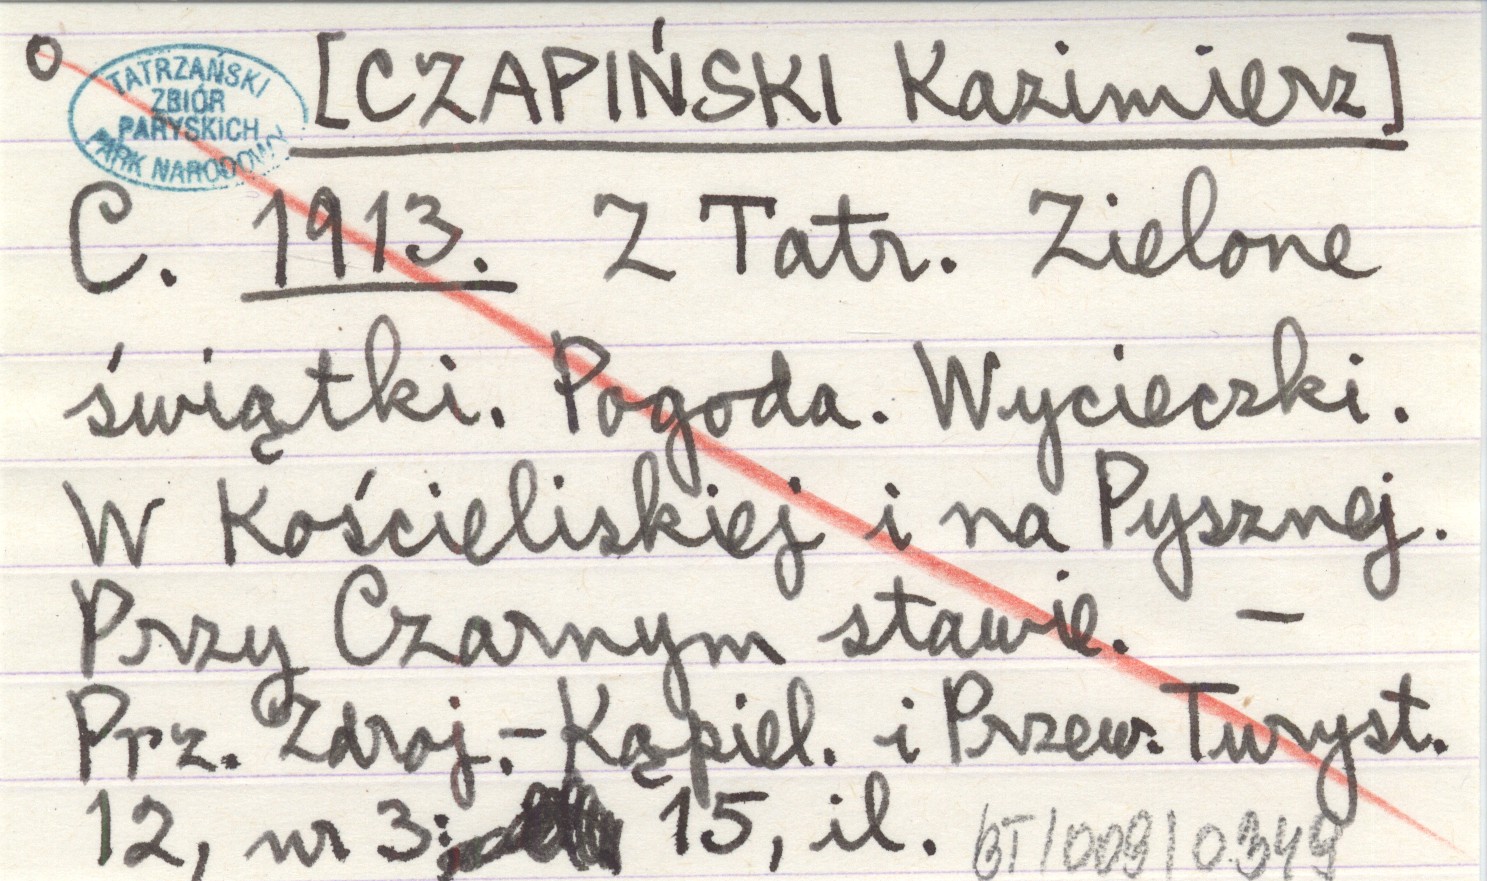 O
TATRZAŃSKI
ZBIÓR
PARYSKICH
PARK NARODOWY
[CZAPIŃSKI Kazimierz]
C. 1913. Z Tatr. Zielone
świątki. Pogoda. Wycieczki.
W Kościeliskiej i na Pysznej.
Przy Czarnym stawie. –
Prz. Zdroj.-Kąpiel. i Przew. Turyst.
12, nr 3: 15, il.
BT/009/0349